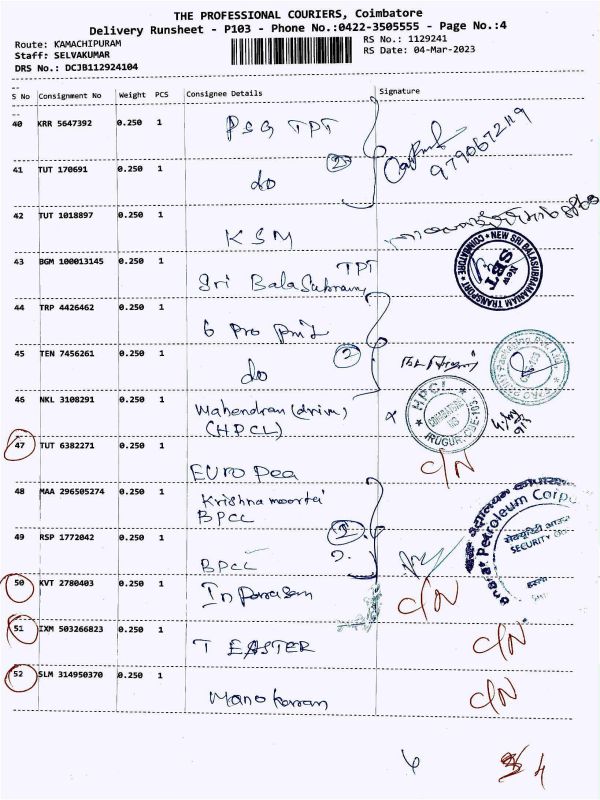 THE PROFESSIONAL COURIERS, Coimbatore
Delivery Runsheet - P103 - Phone No.:0422-3505555 - Page No.:4
Route: KAMACHIPURAM
RS No.: 1129241
Staff: SELVAKUMAR
RS Date: 04-Mar-2023
DRS No.: DCJB112924104
S No Consignment No Weight PCS Consignee Details Signature
40 KRR 5647392 0.250 1 PSG TPT
9790672119
41 TUT 170691 0.250 1 do 2
42 TUT 1018897 0.250 1 KSM
43 BGM 100013145 0.250 1 TPT
Sri BalaSubramani
NEW SRI BALASUBRAMANIAM TRANSPORT * COIMBATORE *
New
SBT
44 TRP 4426462 0.250 1 6 Pro
45 TEN 7456261 0.250 1 do 2
46 NKL 3108291 0.250 1 Mahendran (driver)
(HPCL)
HPCL
COIMBATORE
IRUGUR, CDE
47 TUT 6382271 0.250 1 EUROPea C/N
48 MAA 296505274 0.250 1 Krishnamoorthi
BPCL
Petroleum Corpo
SECURITY
49 RSP 1772042 0.250 1 BPCL 2
50 KVT 2780403 0.250 1 C/N
51 IXM 503266823 0.250 1 T EASTER C/N
52 SLM 314950370 0.250 1 Manokaran C/N
4